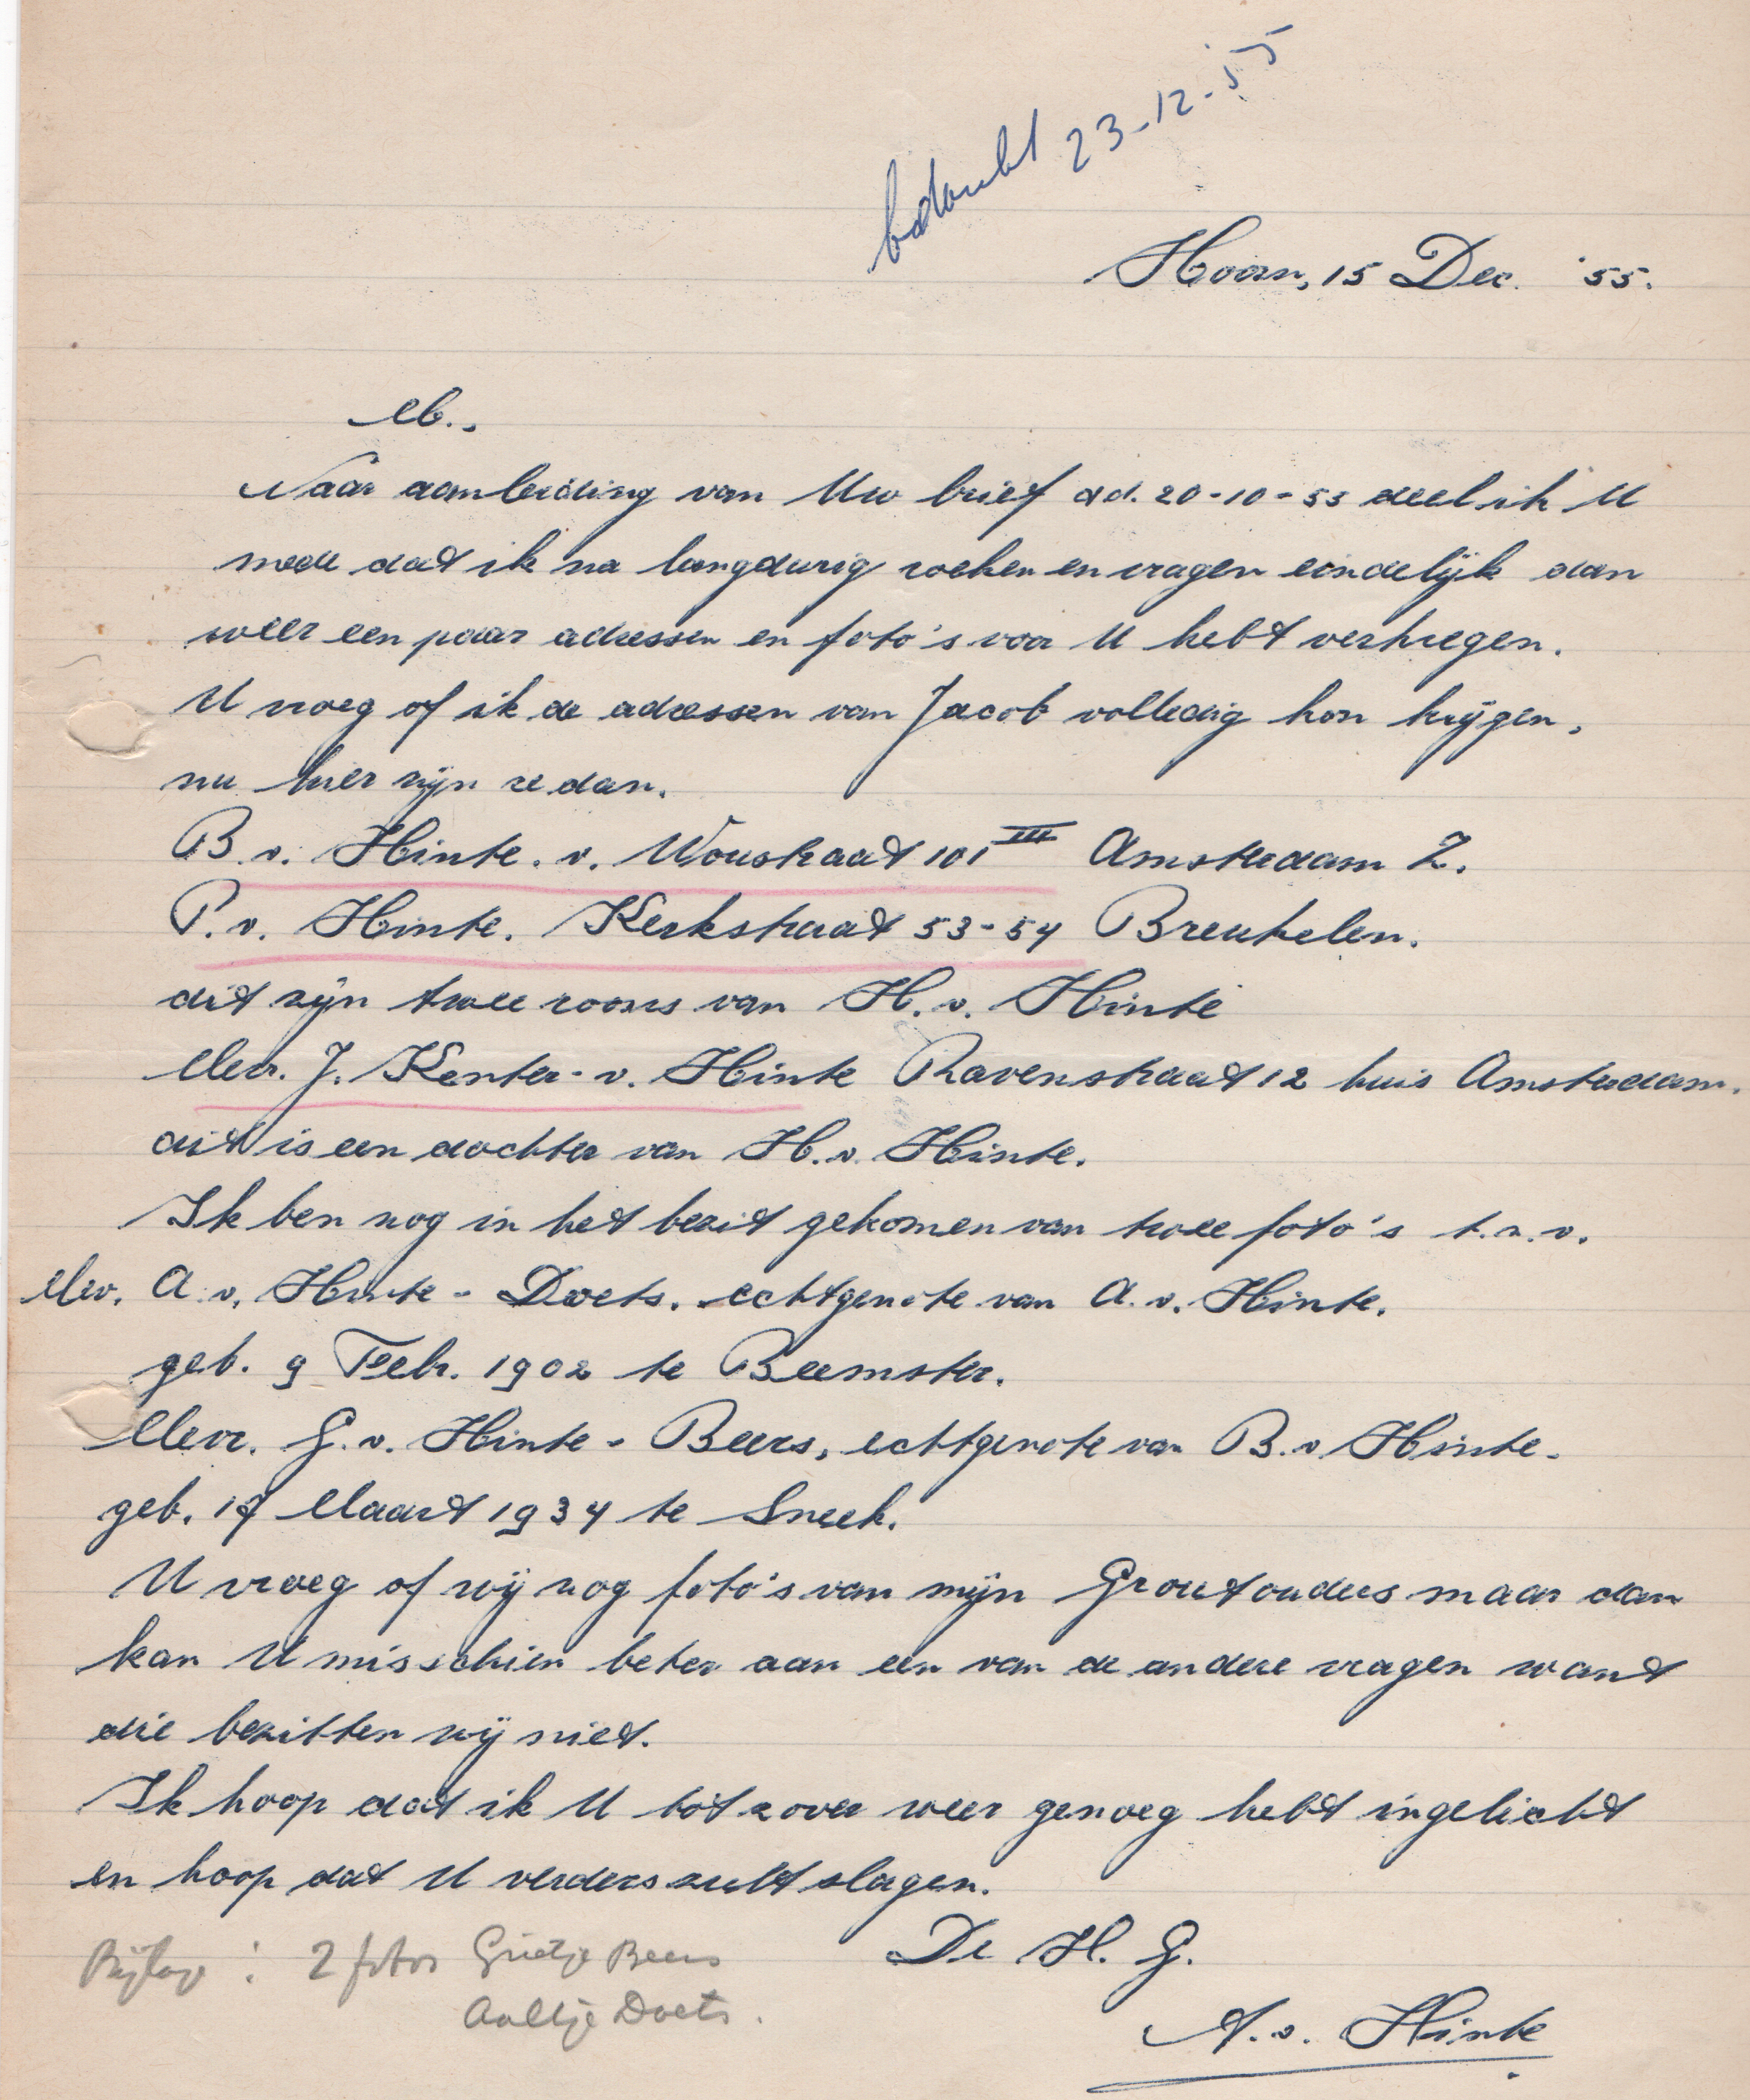 bedankt 23-12-55
Hoorn, 15 Dec. '55.
M.,
Naar aanleiding van Uw brief dd. 20-10-53 deel ik U
mede dat ik na langdurig zoeken en vragen eindelijk dan
weer een paar adressen en foto's voor U hebt verkregen.
U vroeg of ik de adressen van Jacob volledig kon krijgen,
nu hier zijn ze dan.
B. v. Hinte. v. Woustraat 101 III Amsterdam Z.
P. v. Hinte. Kerkstraat 53-54 Breukelen.
dit zijn twee zoons van H. v. Hinte
Mevr. J. Kenter-v. Hinte Ravenstraat 12 huis Amsterdam.
dit is een dochter van H. v. Hinte.
Ik ben nog in het bezit gekomen van twee foto's t.n.v.
Mev. A. v. Hinte - Doets. echtgenote van A. v. Hinte.
geb. 9 Febr. 1902 te Beemster.
Mevr. G. v. Hinte - Beers, echtgenote van B. v Hinte.
geb. 17 Maart 1934 te Sneek.
U vroeg of wij nog foto's van mijn Grootouders maar dan
kan U misschien beter aan een van de andere vragen want
die bezitten wij niet.
Ik hoop dat ik U tot zover weer genoeg hebt ingelicht
en hoop dat U verders zult slagen.
De H. G.
A. v. Hinte
Bijlage: 2 foto's Grietje Beers
Aaltje Doets.